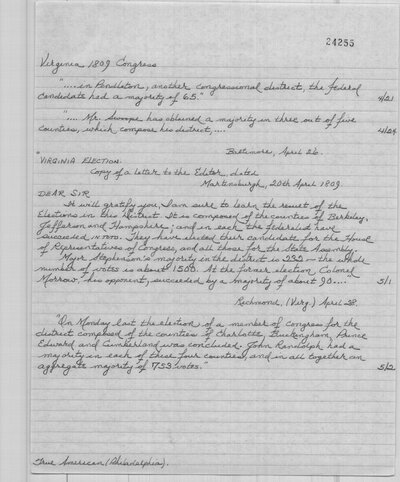 24255
Virginia 1809 Congress
"....in Pendleton, another congressional district, the federal
candidate had a majority of 65."
4/21
".... Mr. Swoope has obtained a majority in three out of five
counties, which compose his district,....
4/24
Baltimore, April 26.
VIRGINIA ELECTION.
Copy of a letter to the Editor, dated
Martinsburgh, 20th April 1809.
DEAR SIR
It will gratify you, I am sure to learn the result of the
Elections in this District. It is composed of the counties of Berkeley,
Jefferson and Hampshire; and in each the federalist have
succeeded in toto. They have elected their candidate for the House
of Representatives of Congress, and all those for the State Assembly.
Major Stephenson's majority in the district is 232 — the whole
number of votes is about 1500. At the former election Colonel
Morrow, his opponent, succeeded by a majority of about 90...."
5/1
Richmond, (Virg.) April 28.
"On Monday last the election, of a member of congress for the
district composed of the counties of Charlotte, Buckingham, Prince
Edward and Cumberland was concluded. John Randolph had a
majority in each of these four counties, and in all together an
aggregate majority of 753 votes."
5/2
True American (Philadelphia).